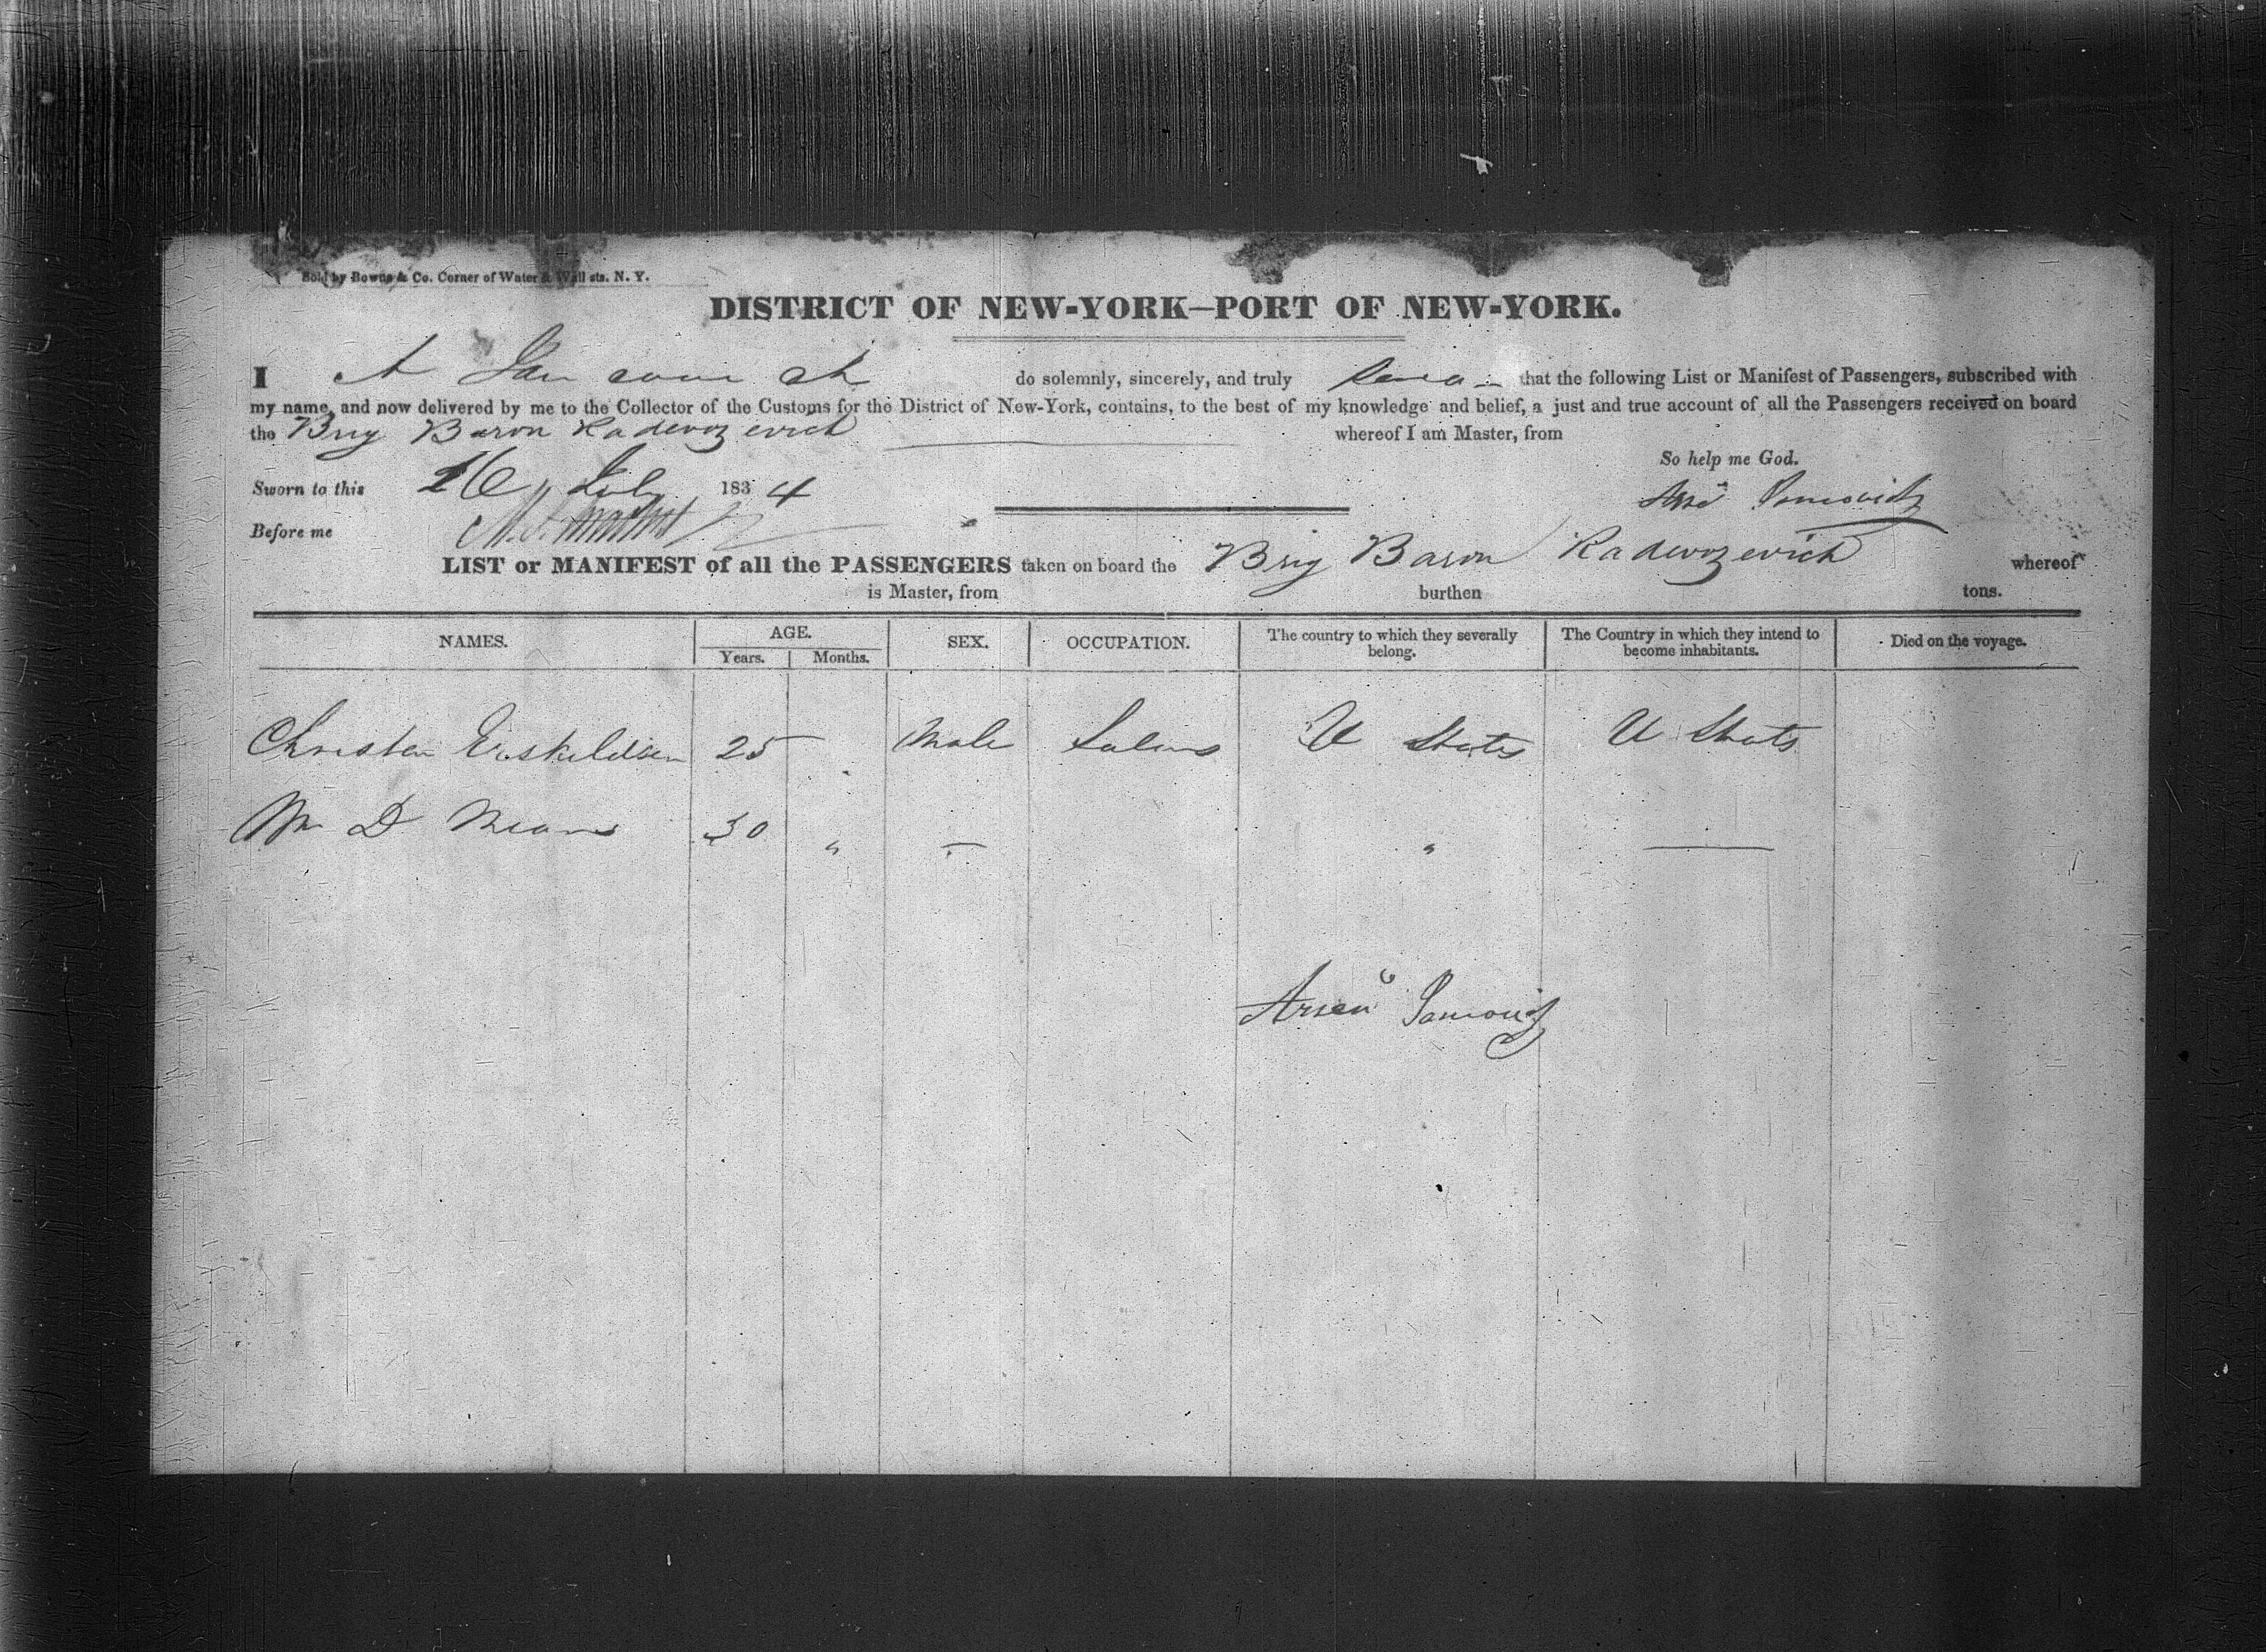 Sold by Bowne & Co. Corner of Water & Wall sts. N. Y.
DISTRICT OF NEW-YORK—PORT OF NEW-YORK.
I A do solemnly, sincerely, and truly that the following List or Manifest of Passengers, subscribed with
my name, and now delivered by me to the Collector of the Customs for the District of New-York, contains, to the best of my knowledge and belief, a just and true account of all the Passengers received on board
the Brig Baron Radevozevich whereof I am Master, from
So help me God.
Sworn to this 16 July 1834
Before me
LIST or MANIFEST of all the PASSENGERS taken on board the Brig Baron Radevozevich whereof
is Master, from burthen tons.
NAMES. AGE. SEX. OCCUPATION. The country to which they severally belong. The Country in which they intend to become inhabitants. Died on the voyage.
Years. Months.
Christen Erskildsen 25 Male U States U States
M D Means 30 " — " —
Arsen